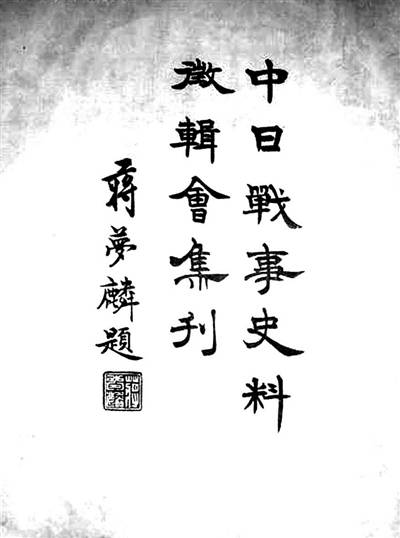 中日戰事史料
徵輯會集刊
蔣夢麟題